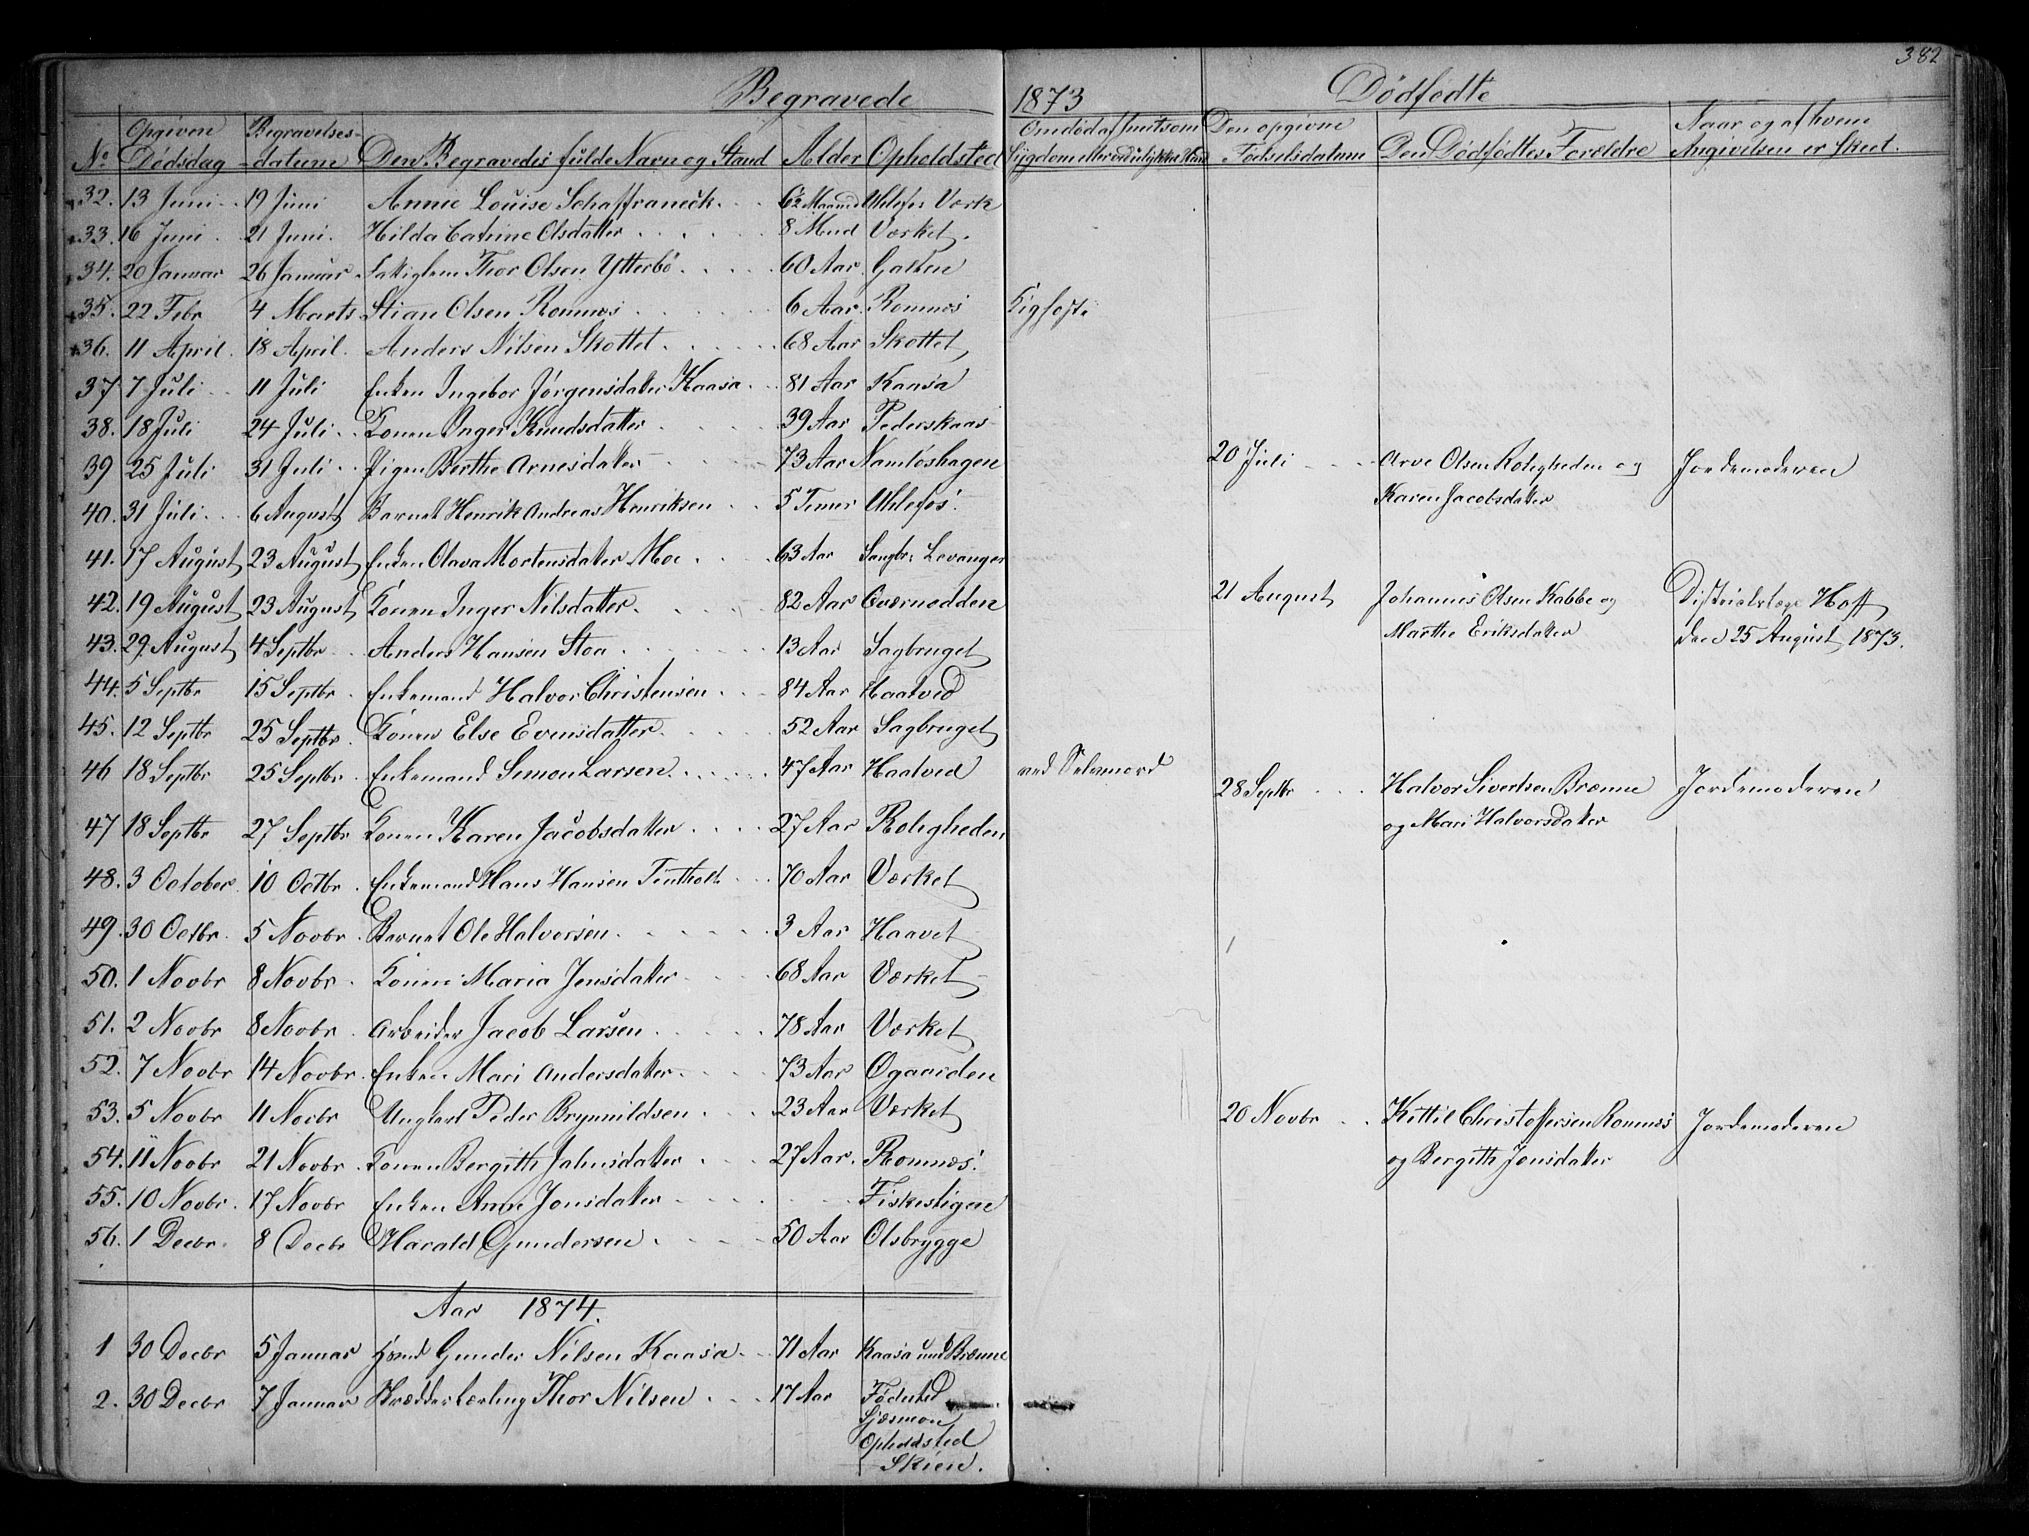 382
Begravede 1873 Dødfødte
No Opgiven Dødsdag Begravelses-datume Den Begravedes fulde Navn og Stand Alder Opholdsted
Den opgivne Fødselsdatum Den Dødfødtes Forældre Naar og af hvem Angivelsen er skeet.
32. 13 Juni 19 Juni Annie Louise Schaffraneck 6½ Maaned Uhlefos Værk
33. 16 Juni 21 Juni. Hilda Catrine Olsdatter 8 Mnd Værket.
34. 20 Januar 26 Januar Thor Olsen Ytterbø 60 Aar Galten
35. 22 Febr 4 Marts Stian Olsen Romnæs 6 Aar Romnæs
36. 11 April. 18 April. Anders Nilsen Skottet 68 Aar Skottet
37 7 Juli 11 Juli Enken Ingebor Jørgensdatter Kaasa 81 Aar Kaasa
38. 18 Juli 24 Juli Konen Inger Knudsdatter 39 Aar Pederskaas
39 25 Juli 31 Juli Pigen Berthe Arnesdatter 73 Aar Namløshagen
20 Juli Arve Olsen Roligheden og Jordemoderen
Karen Jacobsdatter
40. 31 Juli 6 August Barnet Henrik Andreas Henriksen 5 Timer Uhlefos.
41. 17 August 23 August Enken Olava Mortensdatter Moe 63 Aar Levanger
42. 19 August 23 August Konen Inger Nilsdatter 82 Aar Oværnodden
21 August Johannes Olsen Kabbe og Distriktslæge Hoff
Marthe Eriksdatter den 25 August 1873.
43. 29 August 4 Septbr Anders Hansen Stoa 13 Aar Sagbruget
44. 5 Septbr 15 Septbr Enkemand Halvor Christensen 84 Aar Haatved
45. 12 Septbr 25 Septbr Konen Else Evensdatter 52 Aar Sagbruget
46 18 Septbr 25 Septbr Enkemand Simon Larsen 47 Aar Haatved ved Selvmord
28 Septbr Halvor Sivertsen Brænne Jordemoderen
og Mari Halvorsdatter
47 18 Septbr 27 Septbr Konen Karen Jacobsdatter 27 Aar Roligheden
48. 3 October 10 Octbr Enkemand Hans Hansen Tintholt 70 Aar Værket
49. 30 Octbr. 5 Novbr Barnet Ole Halvorsen 3 Aar Haavet
50. 1 Novbr 8 Novbr Konen Maria Jensdatter 68 Aar Værket
51. 2 Novbr 8 Novbr Arbeider Jacob Larsen 78 Aar Værket
52. 7 Novbr 14 Novbr. Enken Mari Andersdatter 73 Aar Øgaarden
53. 5 Novbr 11 Novbr Ungkarl Peder Brynnildsen 23 Aar Værket
20 Novbr Kittil Christoffersen Romnæs Jordemoderen
og Bergith Jonsdatter
54. 11 Novbr 21 Novbr Konen Bergith Johnsdatter 27 Aar. Romnæs.
55. 10 Novbr. 17 Novbr Enken Anne Jonsdatter Fiskestigen
56. 1 Decbr. 8 Decbr Harald Gundersen 50 Aar Olsbrygge
Aar 1874.
1 30 Decbr 5 Januar Gunder Nilsen Kaasa 71 Aar Kaasa und Brænne
2. 30 Decbr 7 Januar Skrædderlærling Thor Nilsen 17 Aar Fødested
Opholdsted
Skien.